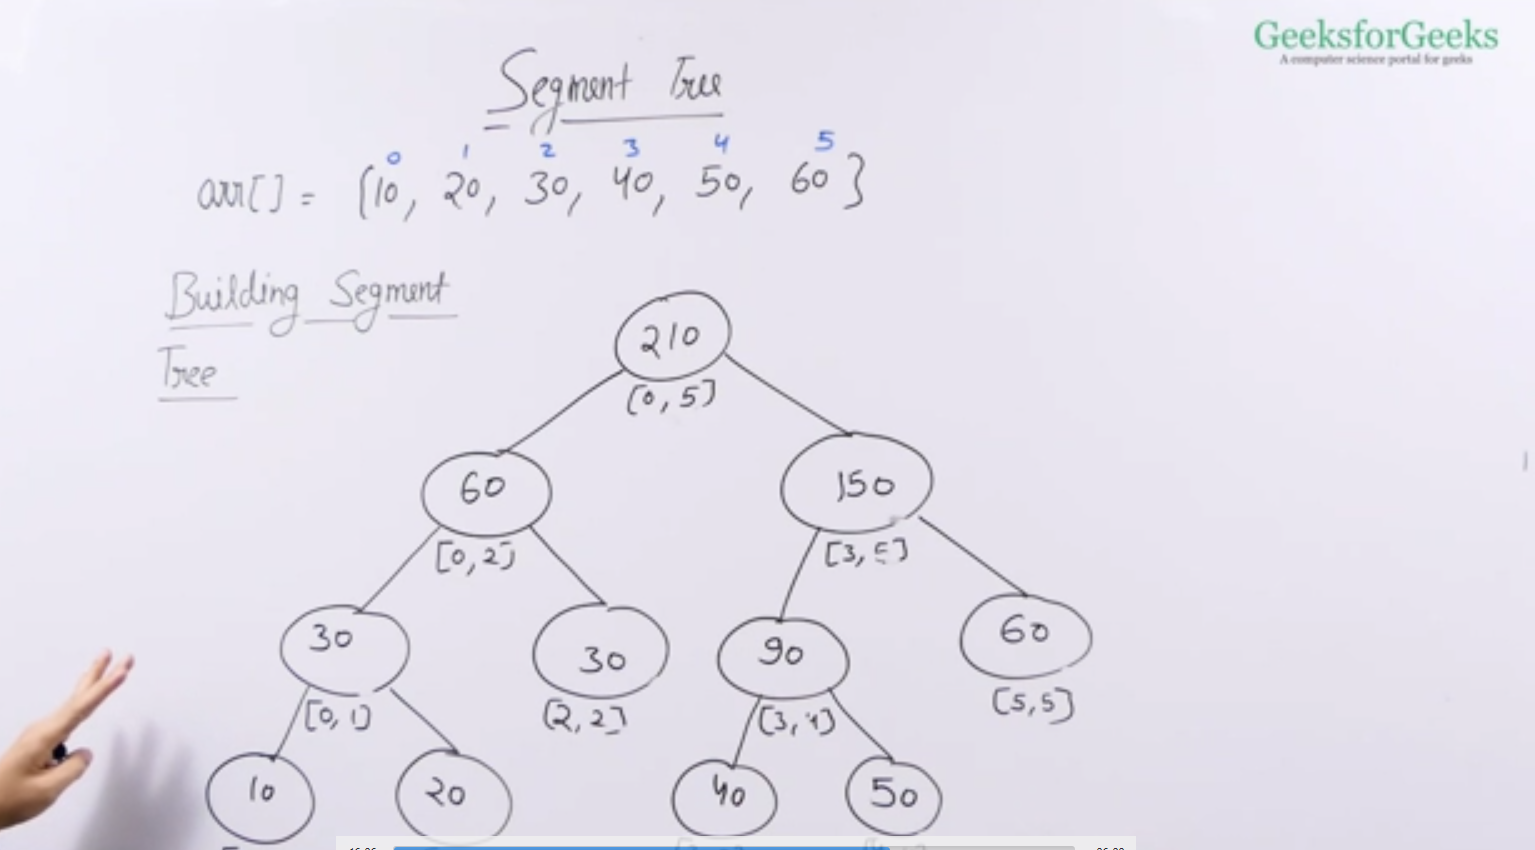 GeeksforGeeks
A computer science portal for geeks
Segment Tree
0 1 2 3 4 5
arr[] = {10, 20, 30, 40, 50, 60}
Building Segment
Tree
210
[0,5]
60 150
[0,2] [3,5]
30 30 90 60
[0,1] [2,2] [3,4] [5,5]
10 20 40 50